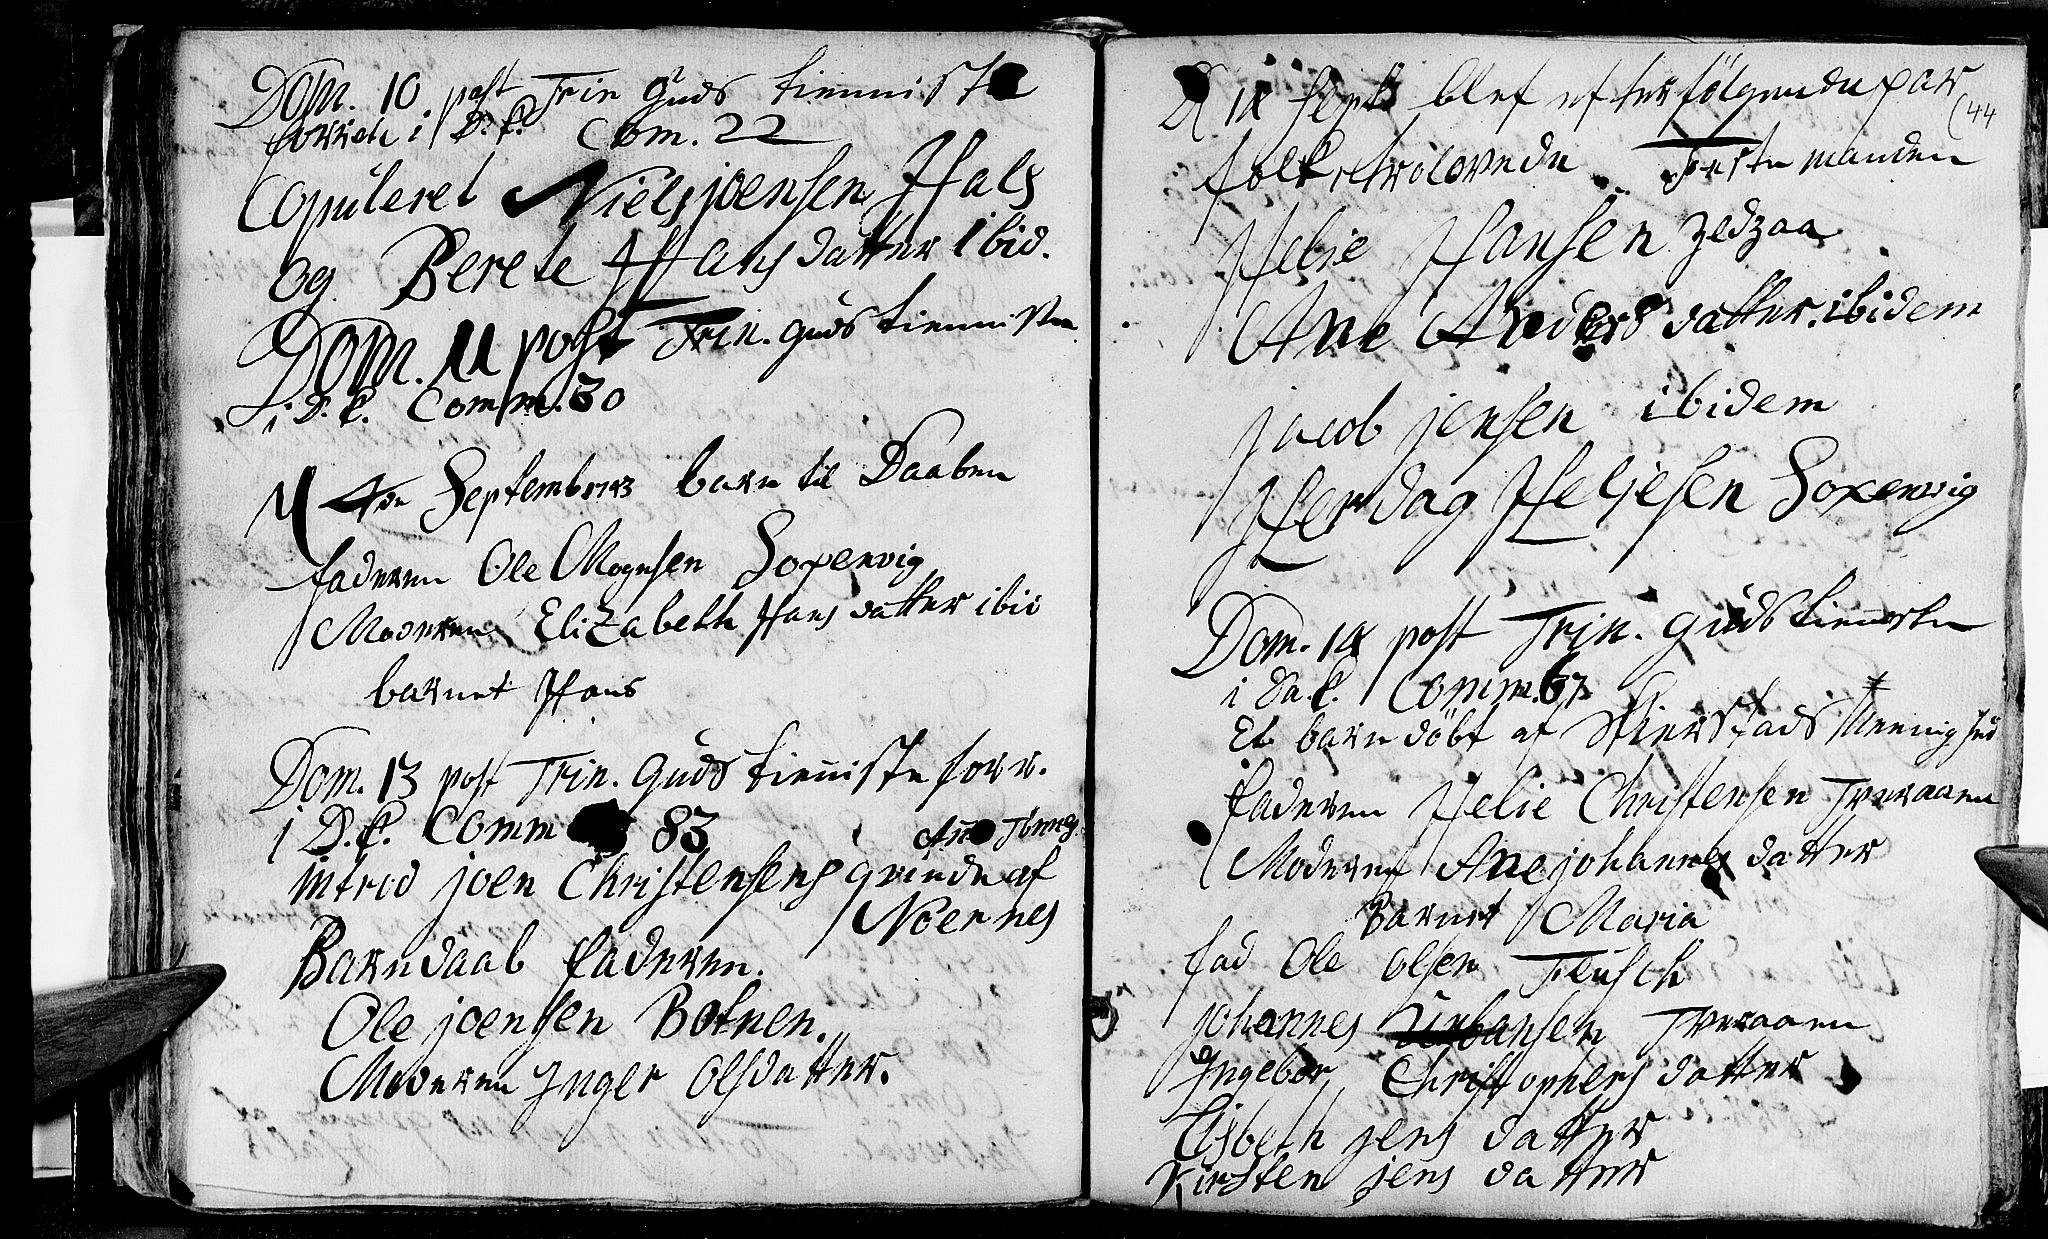 Dom. 10 post Trin Guds tienniste
forret: i D. K. Com. 22
Copuleret Niels joensen Hals
og Berete Hans datter ibid.
Dom. 11 post Trin. guds tienniste
i D. K. Comm. 30
4 den Septemb 1743 barn til Daaben
faderen Ole Mogensen Soxenvig
Moderen Elizabeth Hans datter ibid
barnet Hans
Dom. 13 post Trin. Guds tienniste forr.
i D. K. Comm 83
Ane Tönnes.
introd joen Christensens qvinde af
Noernes
Barndaab faderen.
Ole joensen Botnen.
Moderen Inger Olsdatter.
44
D 14 Sept: blef efterfölgende par
folk trolovede Feste manden
Helie Hansen
Ane Anders datter ibidem
Jacob jensen ibidem
Herdag Heljesen Soxenvig
Dom. 14 post Trin. Guds tienneste
i Da. K. Comm. 67
Et barn döbt af Skierstads Meenighed
faderen Helie Christensen Tveraaen
Moderen Ane johannes datter
Barnet Maria
fad Ole olsen
johannes Urbansen Tveraaen
Ingebor Christophers datter
Lisbeth jens datter
Kirsten jens datter